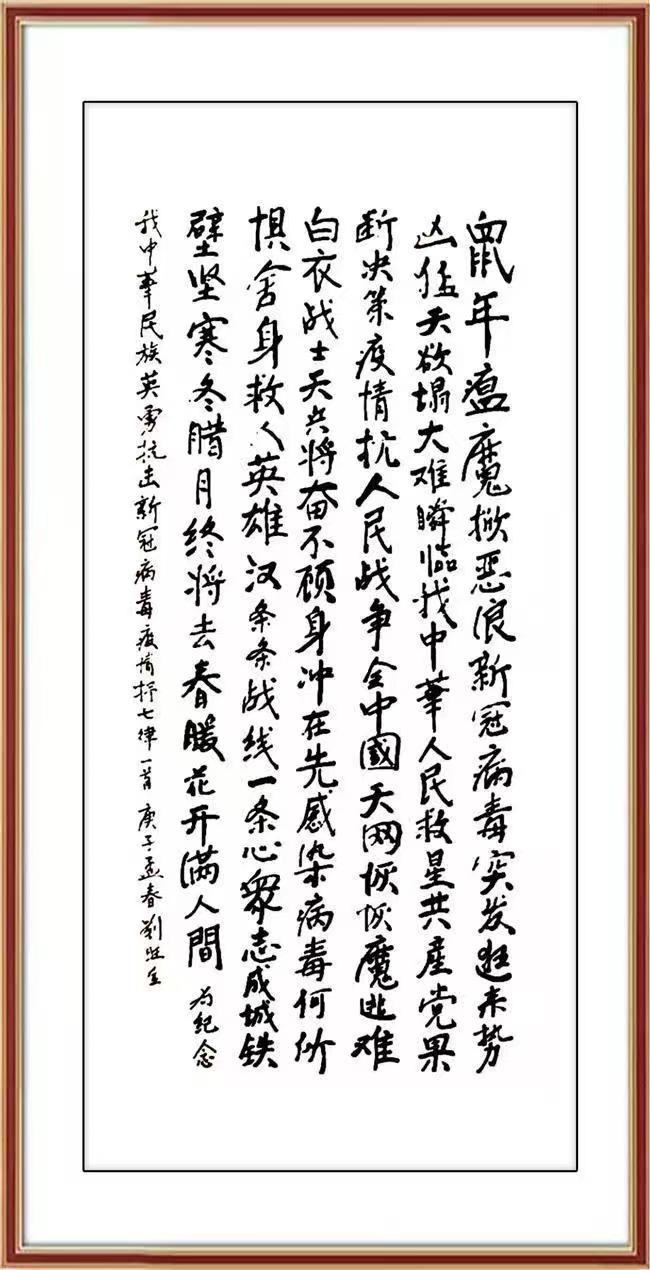 鼠年瘟魔掀恶浪新冠病毒突发逛来势
凶猛天欲塌大难瞬临我中華人民救星共產党果
断决策疫情抗人民战争全中國天网恢恢魔逃难
白衣战士天兵将奋不顾身冲在先感染病毒何所
惧舍身救人英雄汉条条战线一条心衆志成城铁
壁坚寒冬腊月终将去春暖花开满人間 为纪念
我中華民族英勇抗击新冠病毒疫情抒七律一首 庚子孟春刘